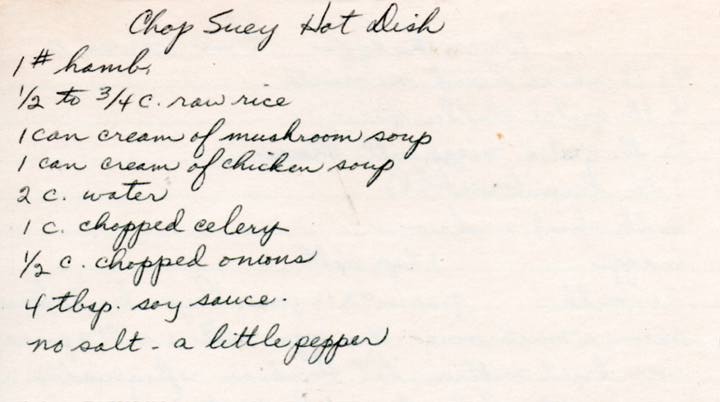 Chop Suey Hot Dish
1 # hamb.
1/2 to 3/4 c. raw rice
1 can cream of mushroom soup
1 can cream of chicken soup
2 c. water
1 c. chopped celery
1/2 c. chopped onions
4 tbsp. soy sauce.
no salt - a little pepper